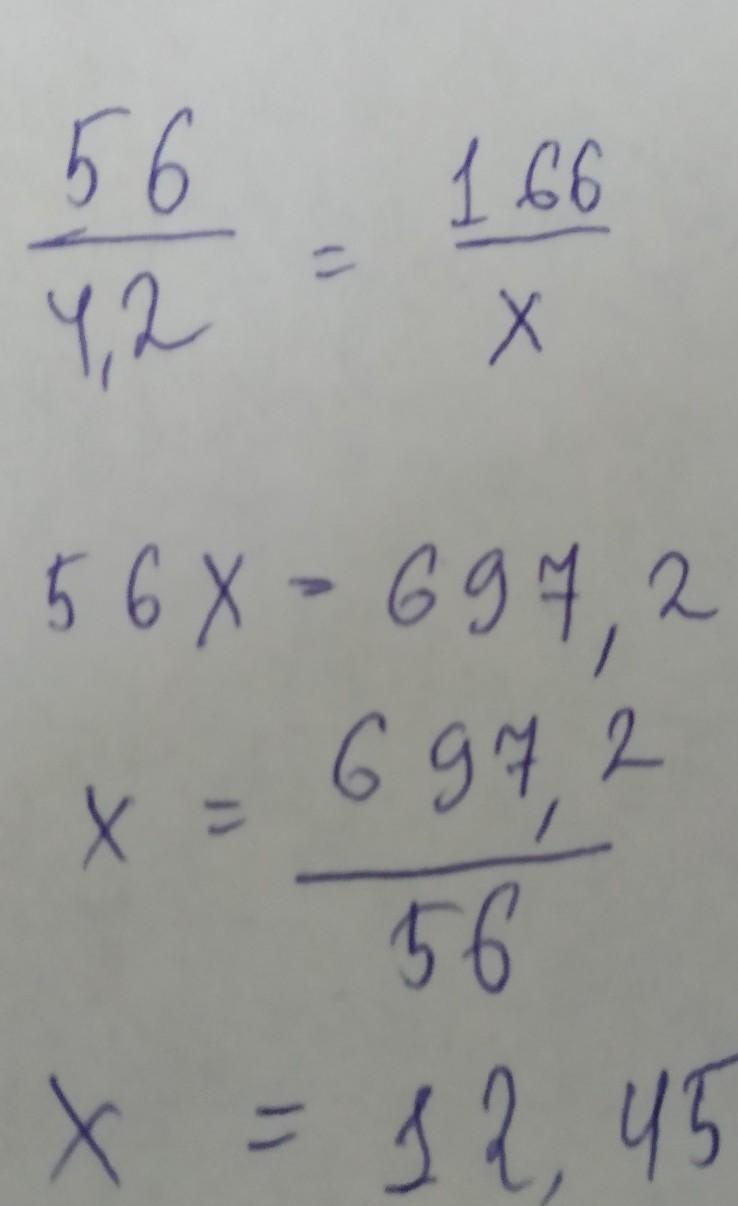 56/4,2 = 166/x
56x = 697,2
x = 697,2/56
x = 12,45